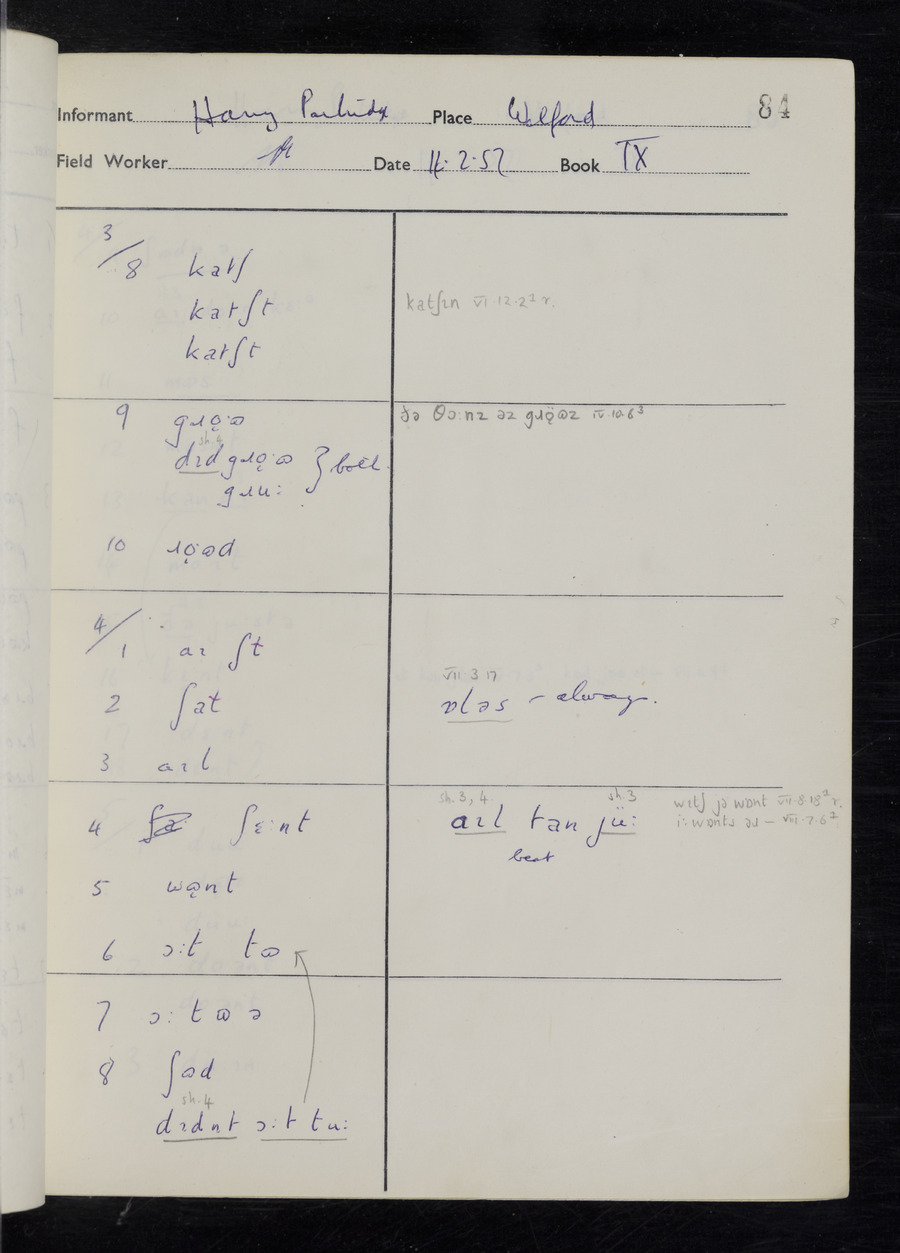 84
Informant Harry Partridge Place Welford
Field Worker Date 11.2.57 Book IX
3/8 katʃ
katʃt
katʃt
katʃɪn VI.12.2
9 gɹo̤:ɷ
sh.4
dɪd gɹo̤:ɷ } both
gɹu:
ðə θɔ:nz əz gɹo̤ɷz IV.10.6³
10 ɹo̤:ɷd
4/1 aɪ ʃt
2 ʃat
3 aɪl
VII 3 17
ɒləs – always.
4 ʃɛ:nt
5 wɑ̤nt
6 ɔ:t tɷ
sh.3, 4. sh.3
aɪl tan jü:
beat
wɪtʃ jə wɒnt VII.8.18
i: wɒnts əɹ – VIII.7.6
7 ɔ: t ɷ ə
8 ʃɷd
sh.4
dɪdnt ɔ:t tu: